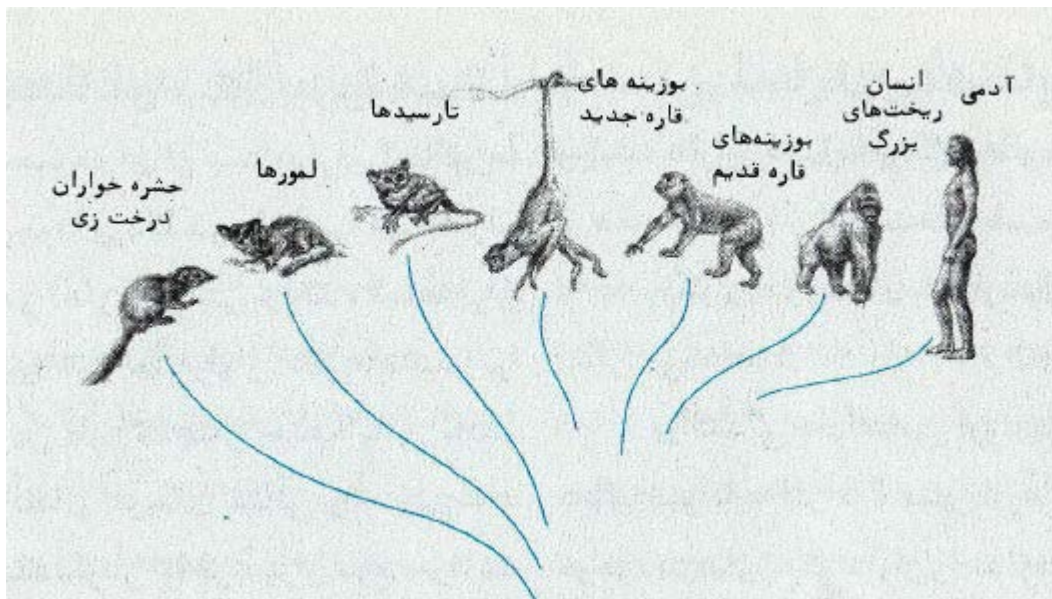 آدمی
انسان
ریخت‌های
بزرگ
بوزینه‌های
قاره قدیم
بوزینه های
قاره جدید
تارسیدها
لمورها
حشره خواران
درخت زی